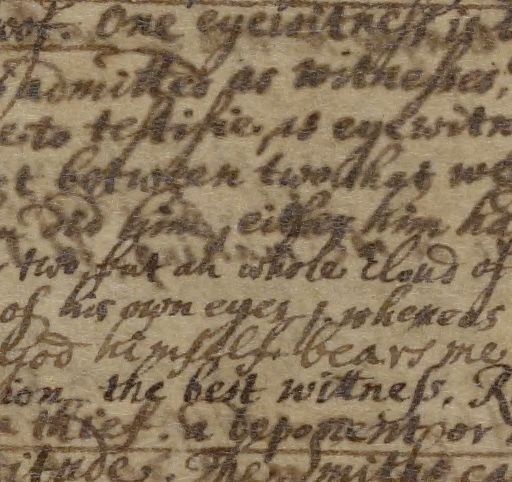 oof. One eyewitness is b
admitted as witnesses,
e to testifie, as eyewitn
t between two that we
did him, either him ha
two, but an whole cloud of
of his own eyes; whereas
God himself bears me
ion the best witness. R
thief. a deponent or